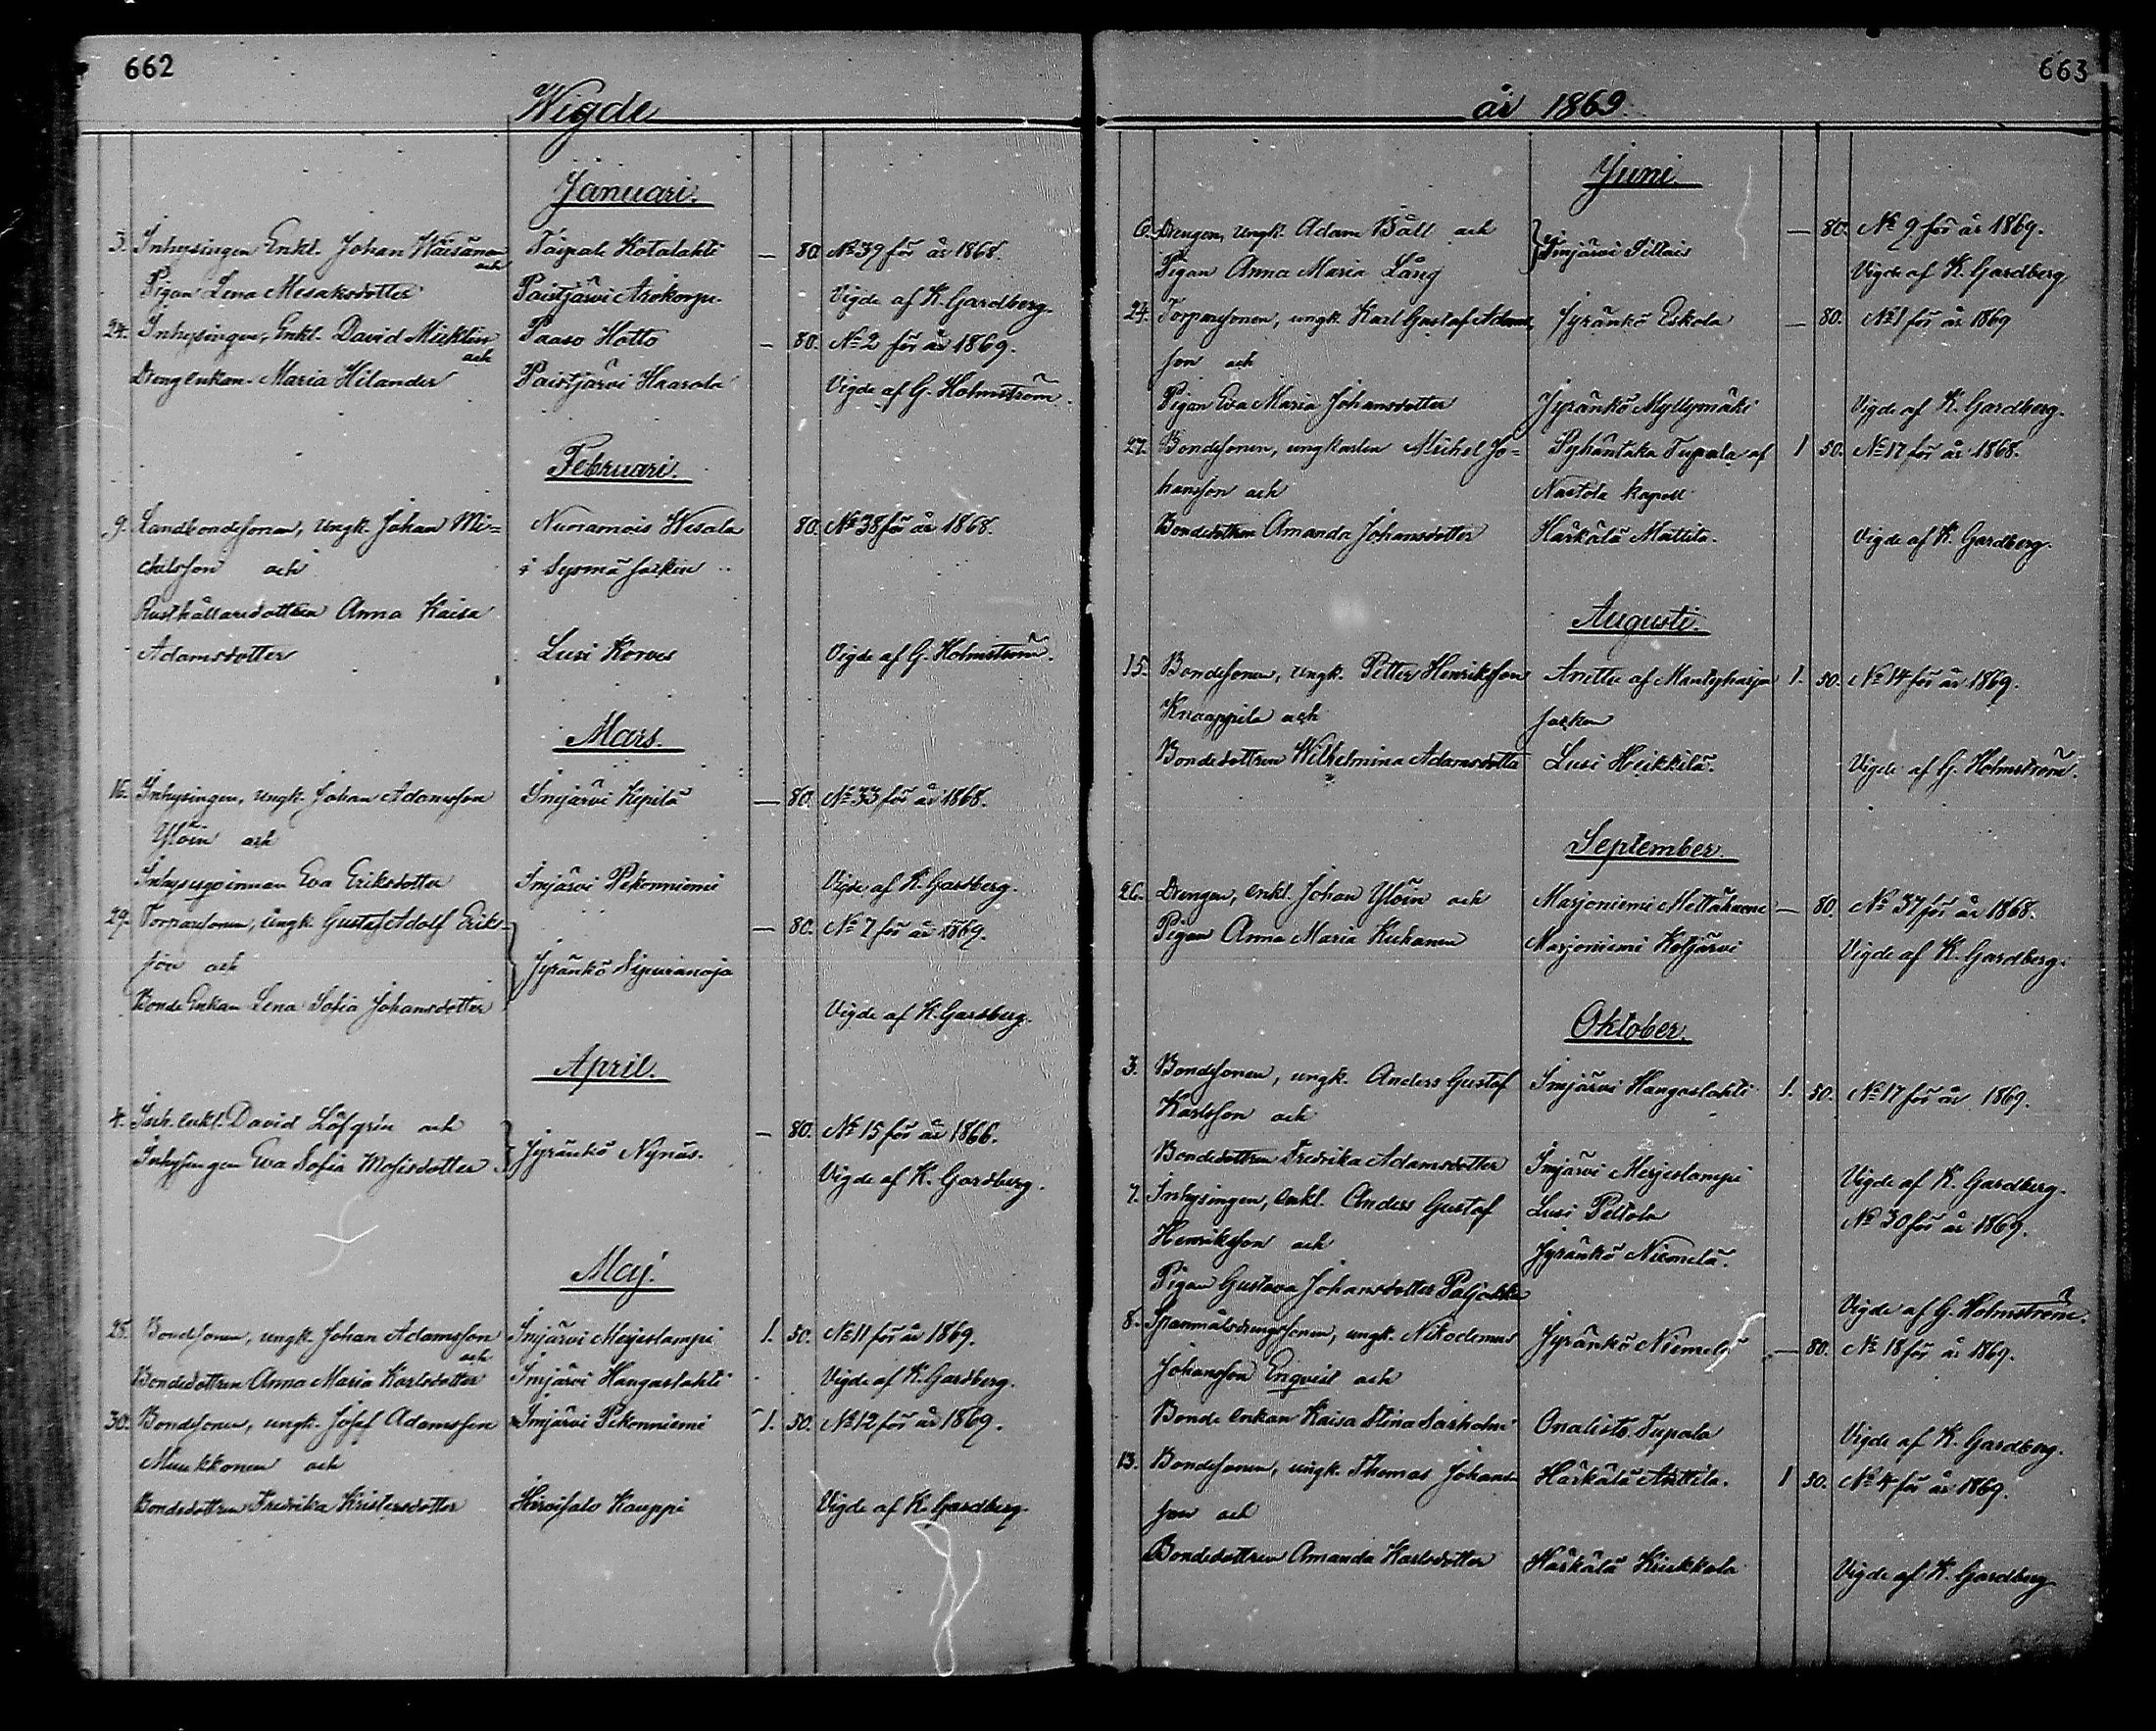 662
Wigde
Januari.
3. Inhysingen Enkl. Johan Wäisänen Taipale Kotalahti — 80. No 39 för år 1868.
och
Pigan Lena Mesaksdotter Paistjärvi Arokorpi. Vigde af K. Gardberg.
24. Inhysingen, Enkl. David Micklin Paaso Hotto — 80. No 2 för år 1869.
och
Drengenkan Maria Hilander Paistjärvi Haarola Vigde af G. Holmström.
Februari.
9. Landbondesonen, Ungk. Johan Mi= Nuoramois Wesala 80. No 38 för år 1868.
chelsson och i Sysmä socken
Rusthållaredottren Anna Kaisa
Adamsdotter Lusi Korves Vigde af G. Holmström.
Mars.
16. Inhysingen, Ungk. Johan Adamsson Imjärvi Kepilä — 80. No 33 för år 1868.
Ylöin och
Inhysesqvinnan Eva Eriksdotter Imjärvi Pekonniemi Vigde af K. Gardberg.
29. Torparsonen, Ungk. Gustaf Adolf Erik= — 80. No 7 för år 1869.
son och Jyränkö Sepuranoja
Bonde Enkan Lena Sofia Johansdotter Vigde af K. Gardberg.
April.
4. Inh. enkl. David Löfgrén och — 80. No 15 för år 1866.
Jyränkö Nynäs.
Inhysingen Eva Sofia Mosisdotter Vigde af K. Gardberg.
Maj.
28. Bondesonen, ungk. Johan Adamsson Imjärvi Merjeslampi 1. 50. No 11 för år 1869.
och
Bondedottren Anna Maria Karlsdotter Imjärvi Hangaslahti Vigde af K. Gardberg.
30. Bondesonen, ungk. Josef Adamsson Imjärvi Pekonniemi 1. 50. No 12 för år 1869.
Muukkonen och
Bondedottren Fredrika Kristersdotter Hirvisalo Kauppi Vigde af K. Gardberg.
663
år 1869.
Juni.
6. Drengen, Ungk. Adam Båll och — 80. No 9 för år 1869.
Imjärvi Tillais
Pigan Anna Maria Lång Vigde af K. Gardberg
24. Torparsonen, ungk. Karl Gustaf Adams Jyränkö Eskola — 80. No 1 för år 1869
son och
Pigan Eva Maria Johansdotter Jyränkö Myllymäki Vigde af K. Gardberg.
27. Bondesonen, ungkarlen Michel Jo= Pyhäntaka Tupala af 1 50. No 17 för år 1868.
hansson och Nastola kapell
Bondedottren Amanda Johansdotter Härkälä Mattila. Vigde af K. Gardberg.
Augusti.
15. Bondesonen, Ungk. Petter Henriksson Anttu af Mantyharju 1. 50. No 14 för år 1869.
Knaappila och socken
Bondedottren Wilhelmina Adamsdotter Lusi Heikkilä. Vigde af G. Holmström.
September.
26. Drengen, enkl. Johan Ylöin och Marjoniemi — 80. No 37 för år 1868.
Pigan Anna Maria Kuhanen Marjoniemi Kotjärvi Vigde af K. Gardberg.
Oktober.
3. Bondesonen, ungk. Anders Gustaf Imjärvi Hangaslahti 1. 50. No 17 för år 1869.
Karlsson och
Bondedottren Fredrika Adamsdotter Imjärvi Merjeslampi Vigde af K. Gardberg.
7. Inhysingen, Enkl. Anders Gustaf Lusi Peltola No 30 för år 1869.
Henriksson och Jyränkö Niemelä.
Pigan Gustava Johansdotter Paljakka Vigde af G. Holmström.
8. Spannmålsdrengsonen, ungk. Nikodemus Jyränkö Niemelä — 80. No 18 för år 1869.
Johansson Enqvist och
Bonde enkan Kaisa Stina Saxholm Onalisto Tupala Vigde af K. Gardberg.
13. Bondesonen, ungk. Thomas Johans= Härkälä Anttila. 1 50. No 4 för år 1869.
son och
Bondedottren Amanda Karlsdotter Härkälä Kirkkola Vigde af K. Gardberg